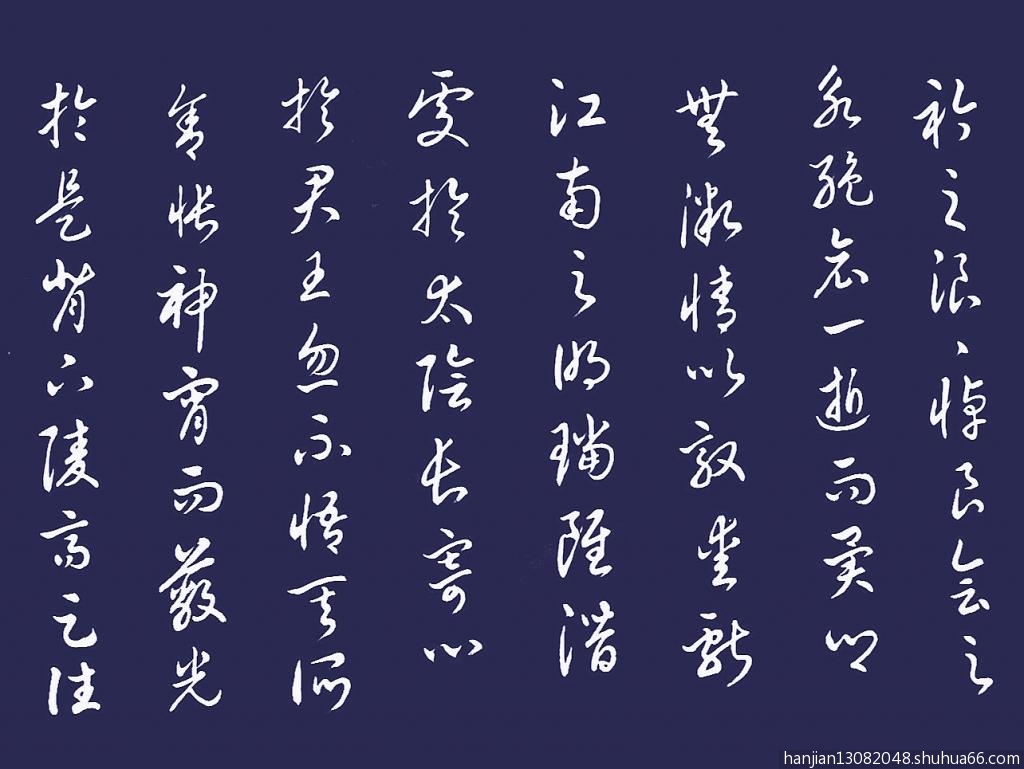 衿之浪々悼良会之
永絶哀一逝而異鄉
無微情以效愛獻
江南之明璫雖潛
處於太陰長寄心
於君王忽不悟其所
舍悵神宵而蔽光
於是背下陵高足往
hanjian13082048.shuhua66.com